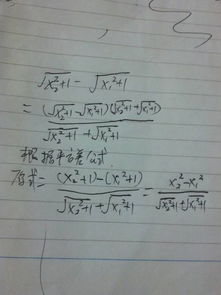 √(x₂²+1) - √(x₁²+1)
= (√(x₂²+1) - √(x₁²+1))(√(x₂²+1) + √(x₁²+1)) / (√(x₂²+1) + √(x₁²+1))
根据平方差公式
原式= ((x₂²+1)-(x₁²+1)) / (√(x₂²+1) + √(x₁²+1)) = (x₂²-x₁²) / (√(x₂²+1)+√(x₁²+1))